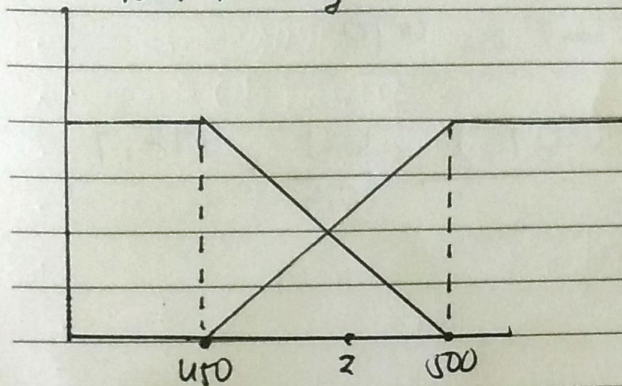 450 z 500